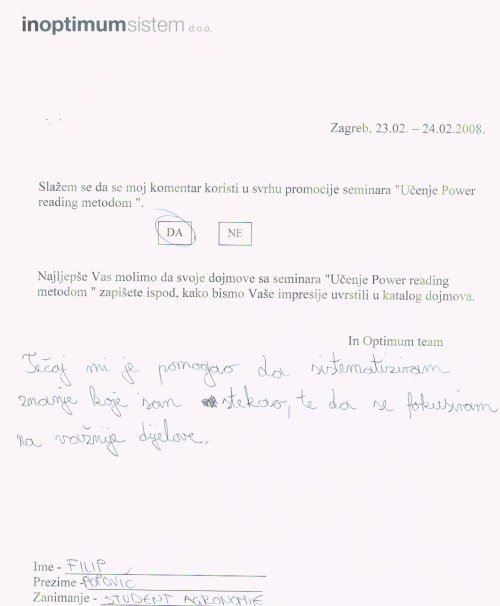 inoptimumsistem d.o.o.
Zagreb, 23.02. – 24.02.2008.
Slažem se da se moj komentar koristi u svrhu promocije seminara "Učenje Power
reading metodom ".
DA NE
Najljepše Vas molimo da svoje dojmove sa seminara "Učenje Power reading
metodom " zapišete ispod, kako bismo Vaše impresije uvrstili u katalog dojmova.
In Optimum team
Tečaj mi je pomogao da sistematiziram
znanje koje sam stekao, te da se fokusiram
na važnije dijelove.
Ime - FILIP
Prezime - POPOVIĆ
Zanimanje - STUDENT AGRONOMIJE